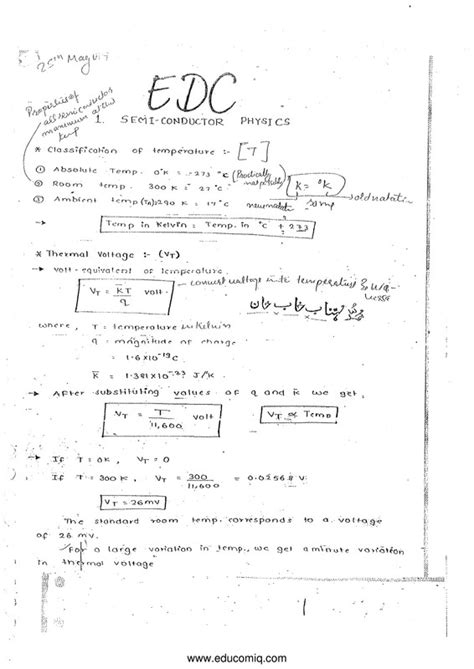 25th May
EDC
Properties of
all semiconductor
1. SEMI-CONDUCTOR PHYSICS
* Classification of temperature :- [T]
① Absolute Temp. 0°K = -273 °C (Practically
not possible)
K = °K
② Room temp. 300 K = 27 °C
③ Ambient temp (Ta) 290 K = 17 °C
→ Temp in Kelvin = Temp. in °C + 273
* Thermal Voltage :- (VT)
→ volt-equivalent of temperature.
VT = k̄T/q volt.
where, T = temperature in Kelvin
q = magnitude of charge
= 1.6×10⁻¹⁹C
k̄ = 1.381×10⁻²³ J/K
→ After substituting values of q and k̄ we get,
VT = T/11,600 volt
VT ∝ Temp
→ If T = 0K, VT = 0
If T = 300 K, VT = 300/11,600 = 0.02568 V
VT = 26mV
The standard room temp. corresponds to a voltage
of 26 mV.
For a large variation in temp., we get a minute variation
in thermal voltage
1
www.educomiq.com